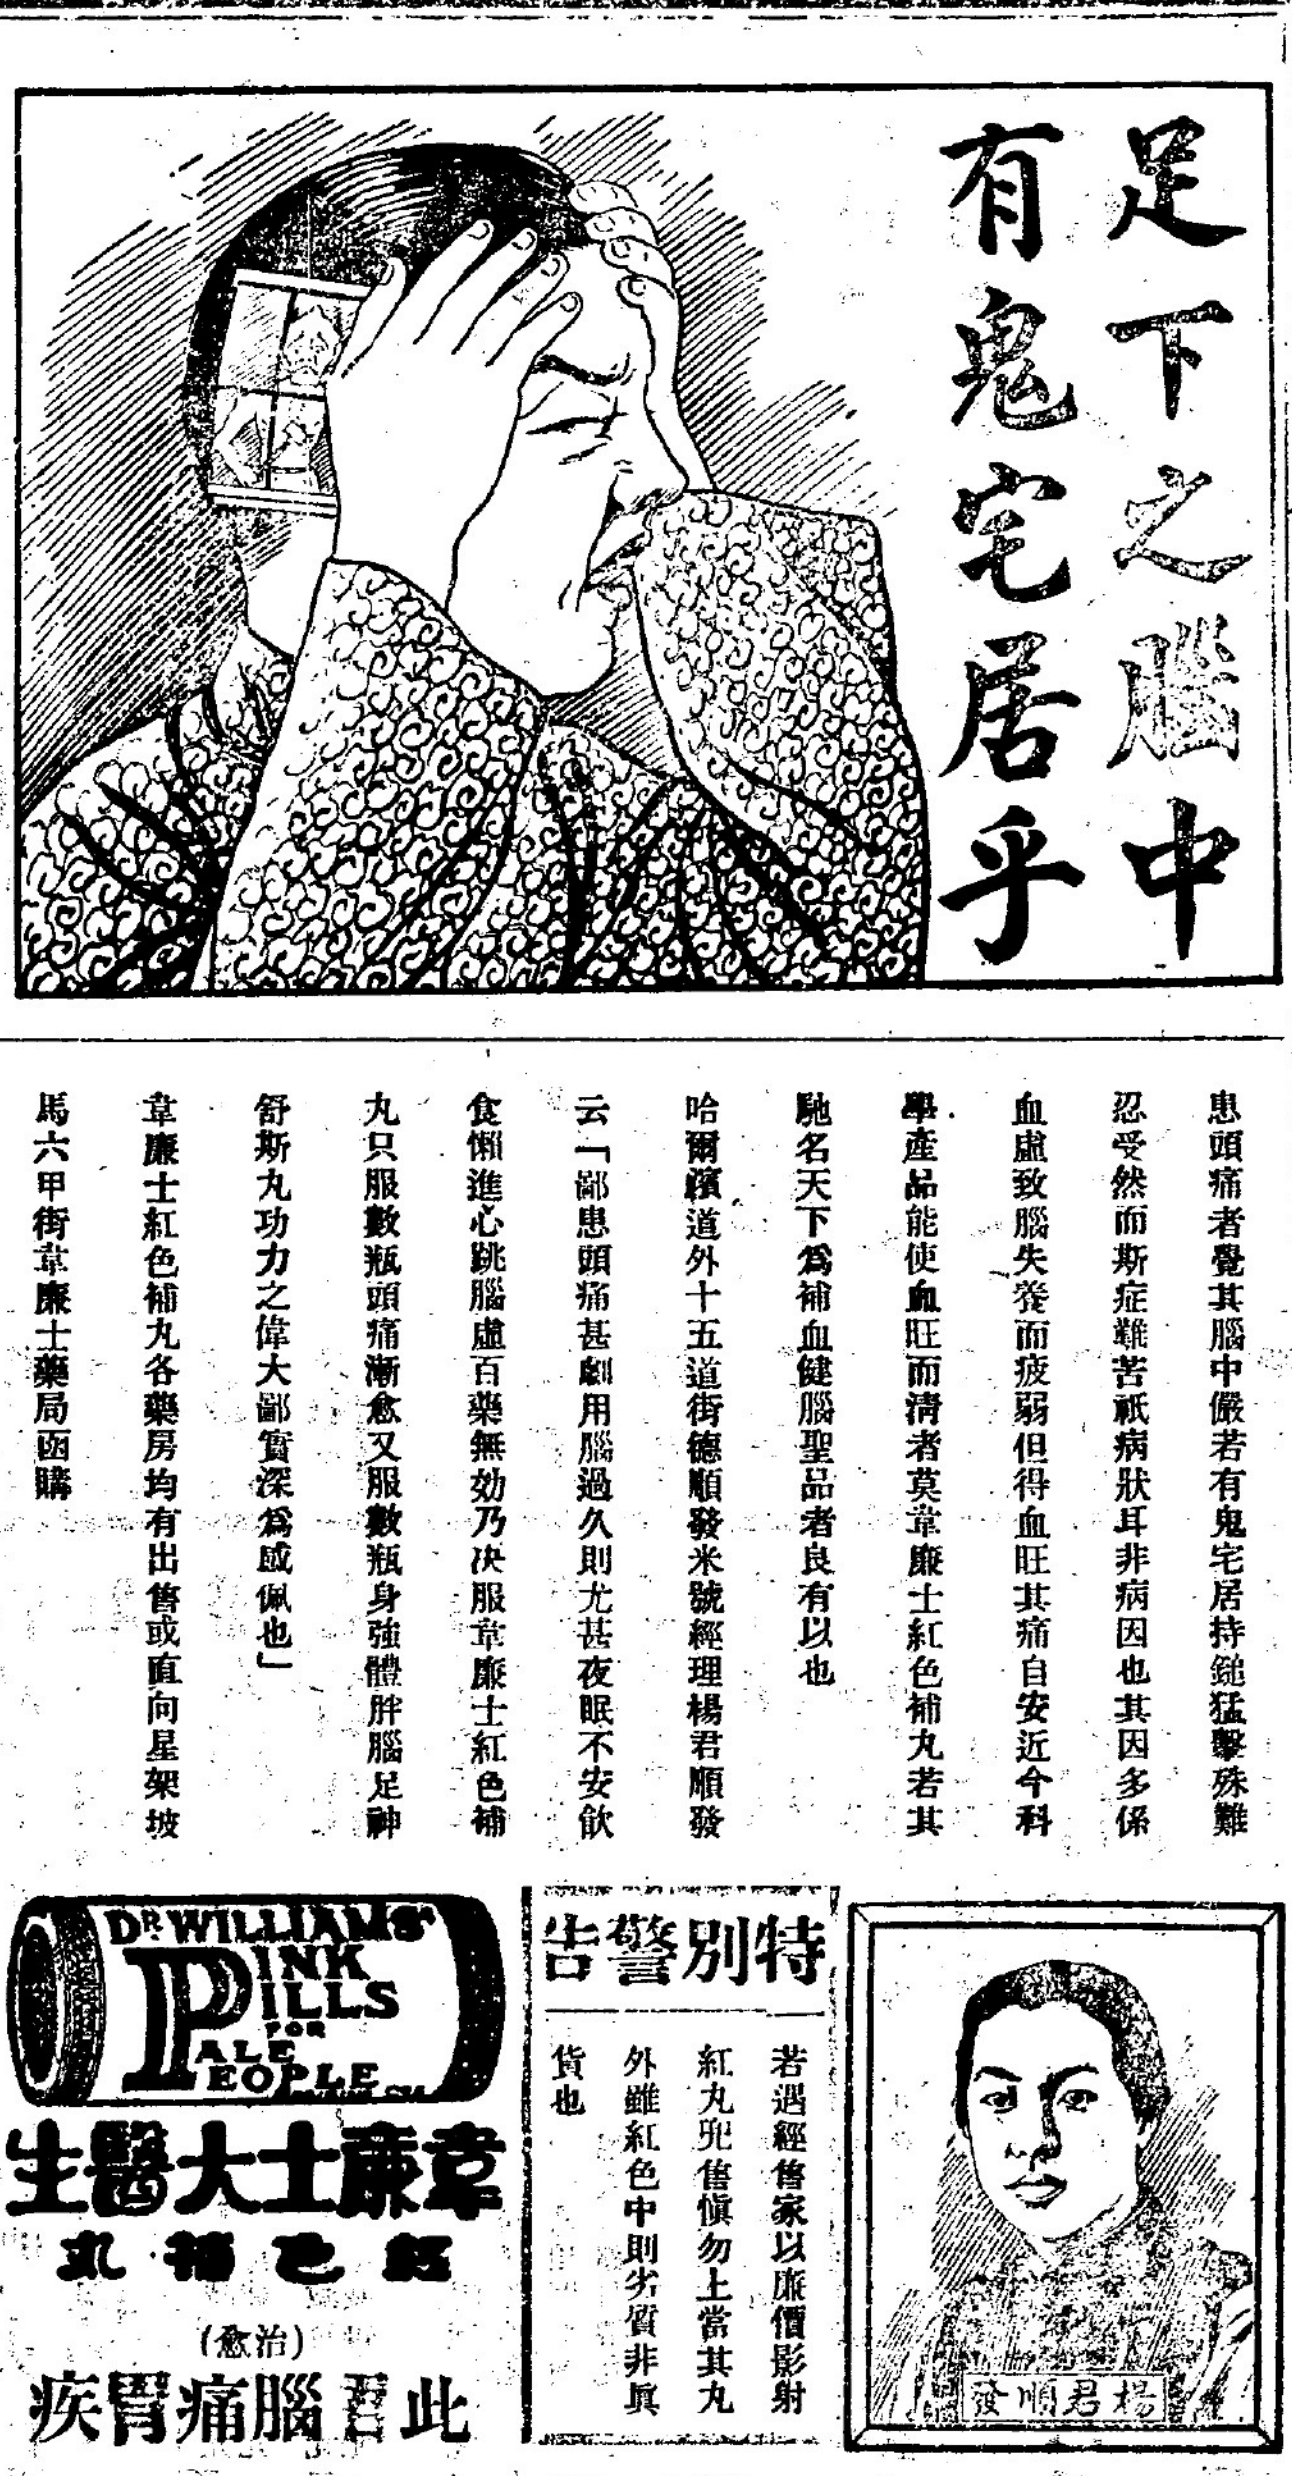 足下之腦中
有鬼宅居乎
患頭痛者覺其腦中儼若有鬼宅居持鎚猛擊殊難
忍受然而斯症難苦祇病狀耳非病因也其因多係
血虛致腦失養而疲弱但得血旺其痛自安近今科
學產品能使血旺而清者莫韋廉士紅色補丸若其
馳名天下爲補血健腦聖品者良有以也
哈爾濱道外十五道街德順發米號經理楊君順發
云「鄙患頭痛甚劇用腦過久則尤甚夜眠不安飲
食懶進心跳腦虛百藥無効乃决服韋廉士紅色補
丸只服數瓶頭痛漸愈又服數瓶身強體胖腦足神
舒斯丸功力之偉大鄙實深爲感佩也」
韋廉士紅色補丸各藥房均有出售或直向星架坡
馬六甲街韋廉士藥局函購
楊君順發
特別警告
若遇經售家以廉價影射
紅丸兜售愼勿上當其丸
外雖紅色中則劣質非眞
貨也
DR. WILLIAMS'
PINK
PILLS
FOR
PALE
PEOPLE
韋廉士大醫生
紅色補丸
(治愈)
此君腦痛胃疾